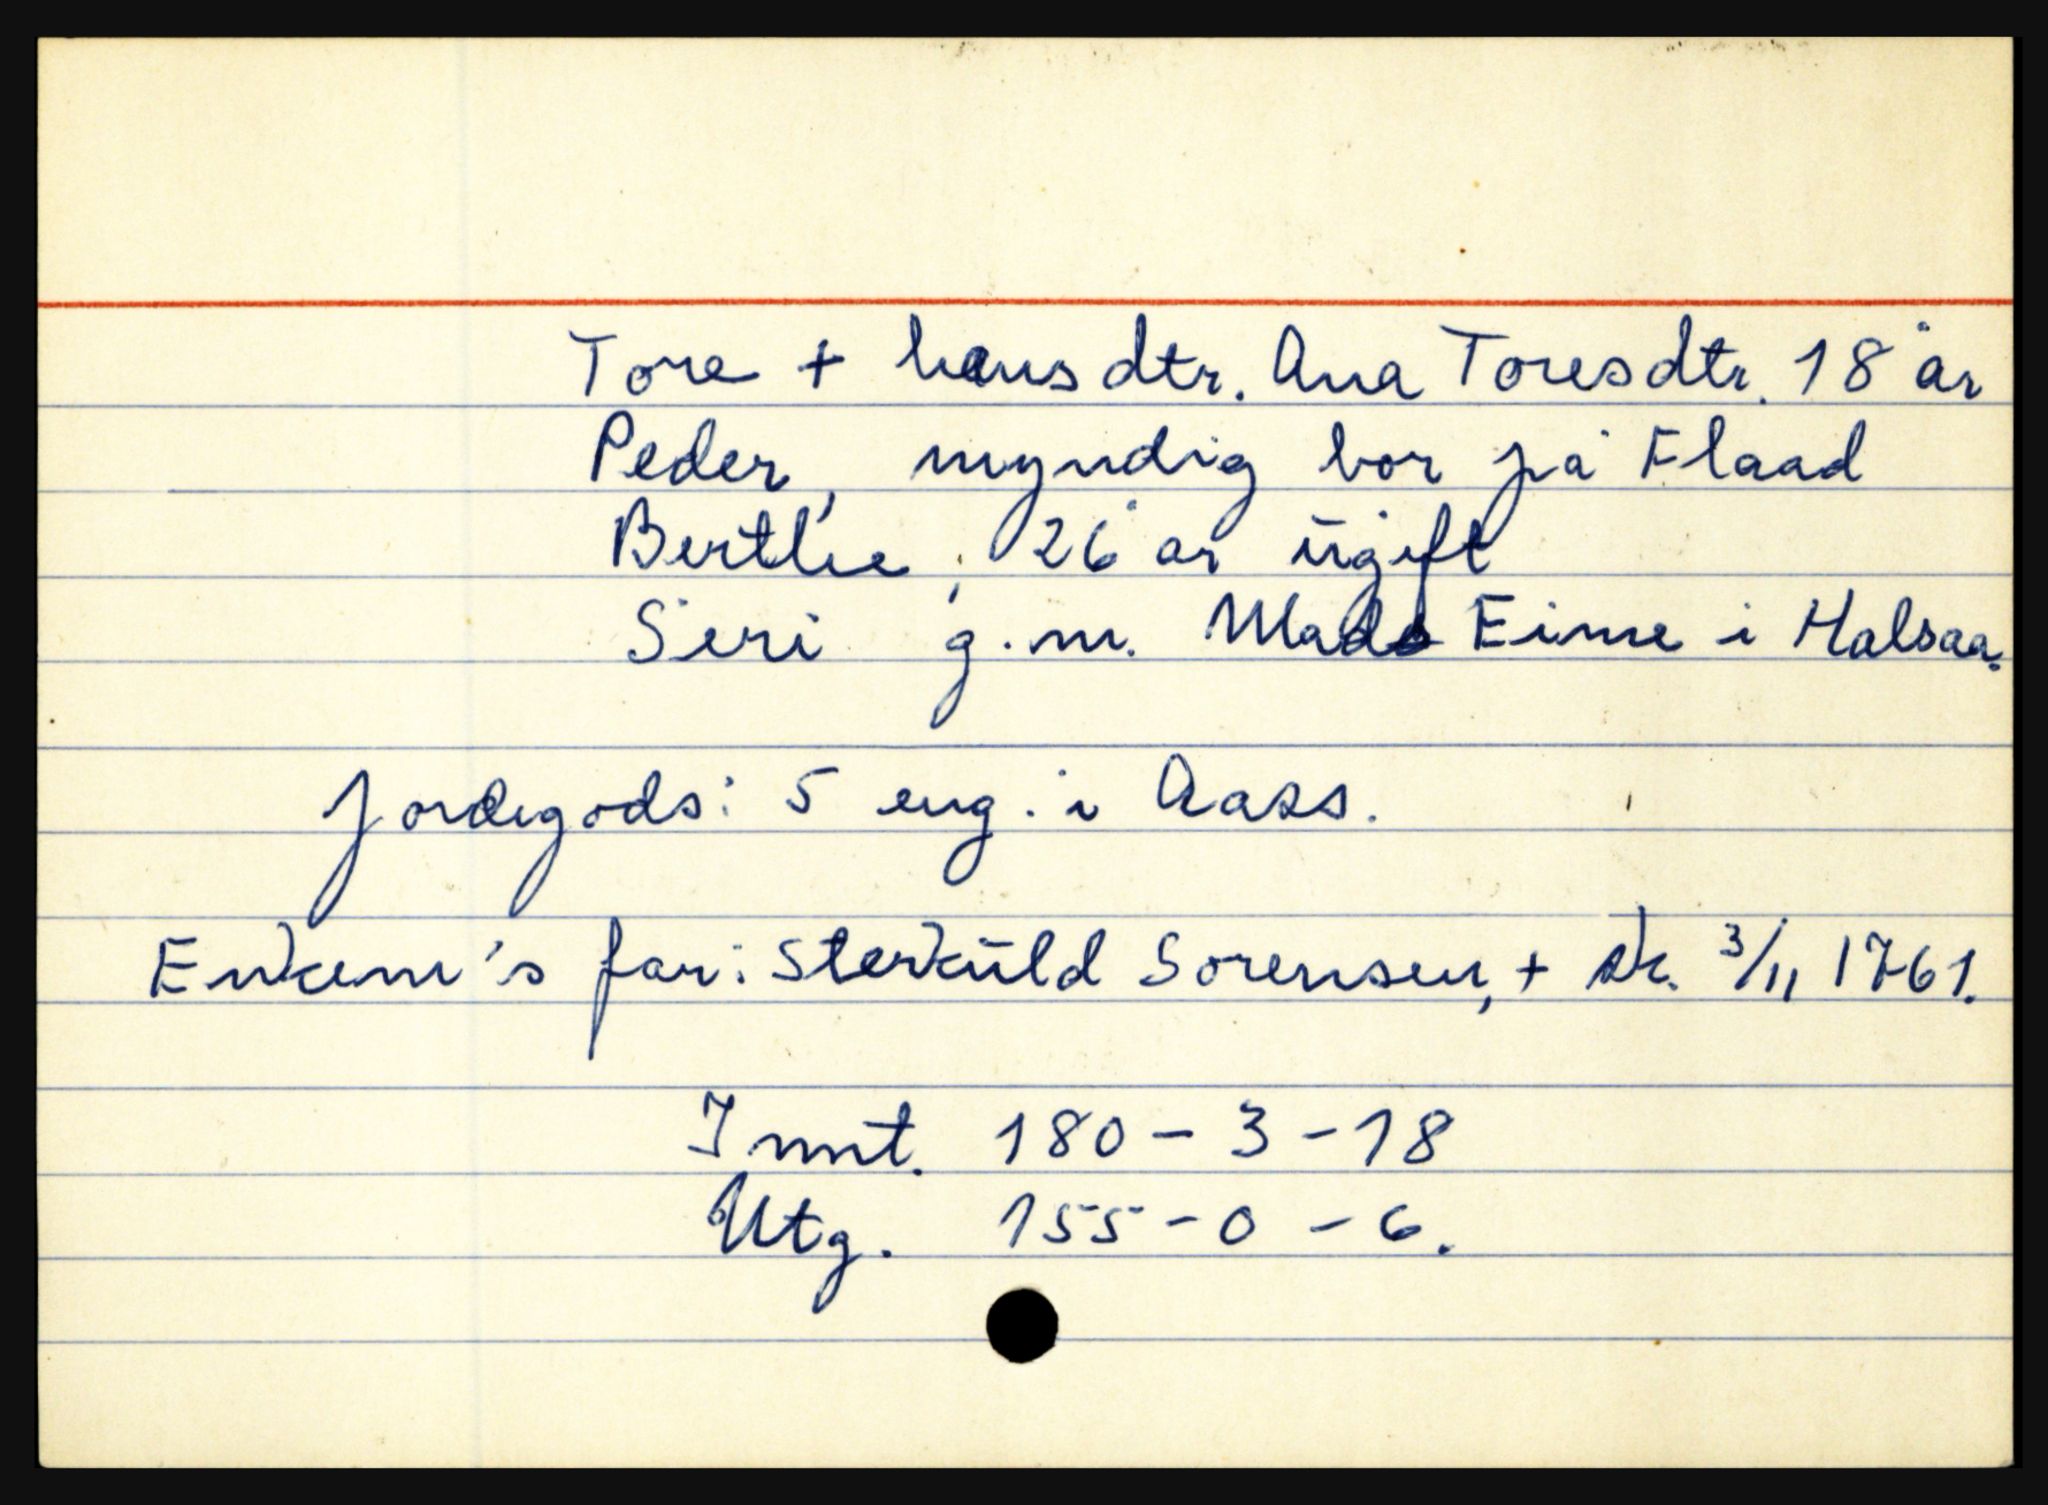 Tore + hans dtr. Ana Toresdtr. 18 år
Peder, myndig bor på Flaad
Berthe, 26 år ugift
Seri g.m. Mads Eime i Halsaa.
Jordegods: 5 eng. i Aass.
Enkem's far: Sterkuld Sorensen, + sk. 3/11 1761.
Innt. 180-3-18
Utg. 155-0-6.